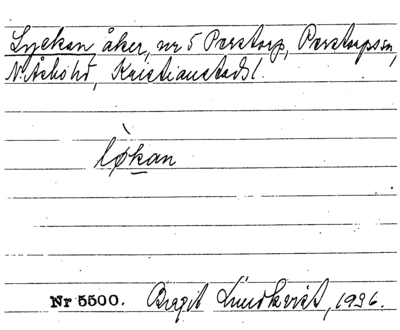 Lyckan åker, nr 5 Perstorp, Perstorps sn,
N. Åsbo hd, Kristianstads l.
løkan
Nr 5500. Birgit Lindkvist, 1936.